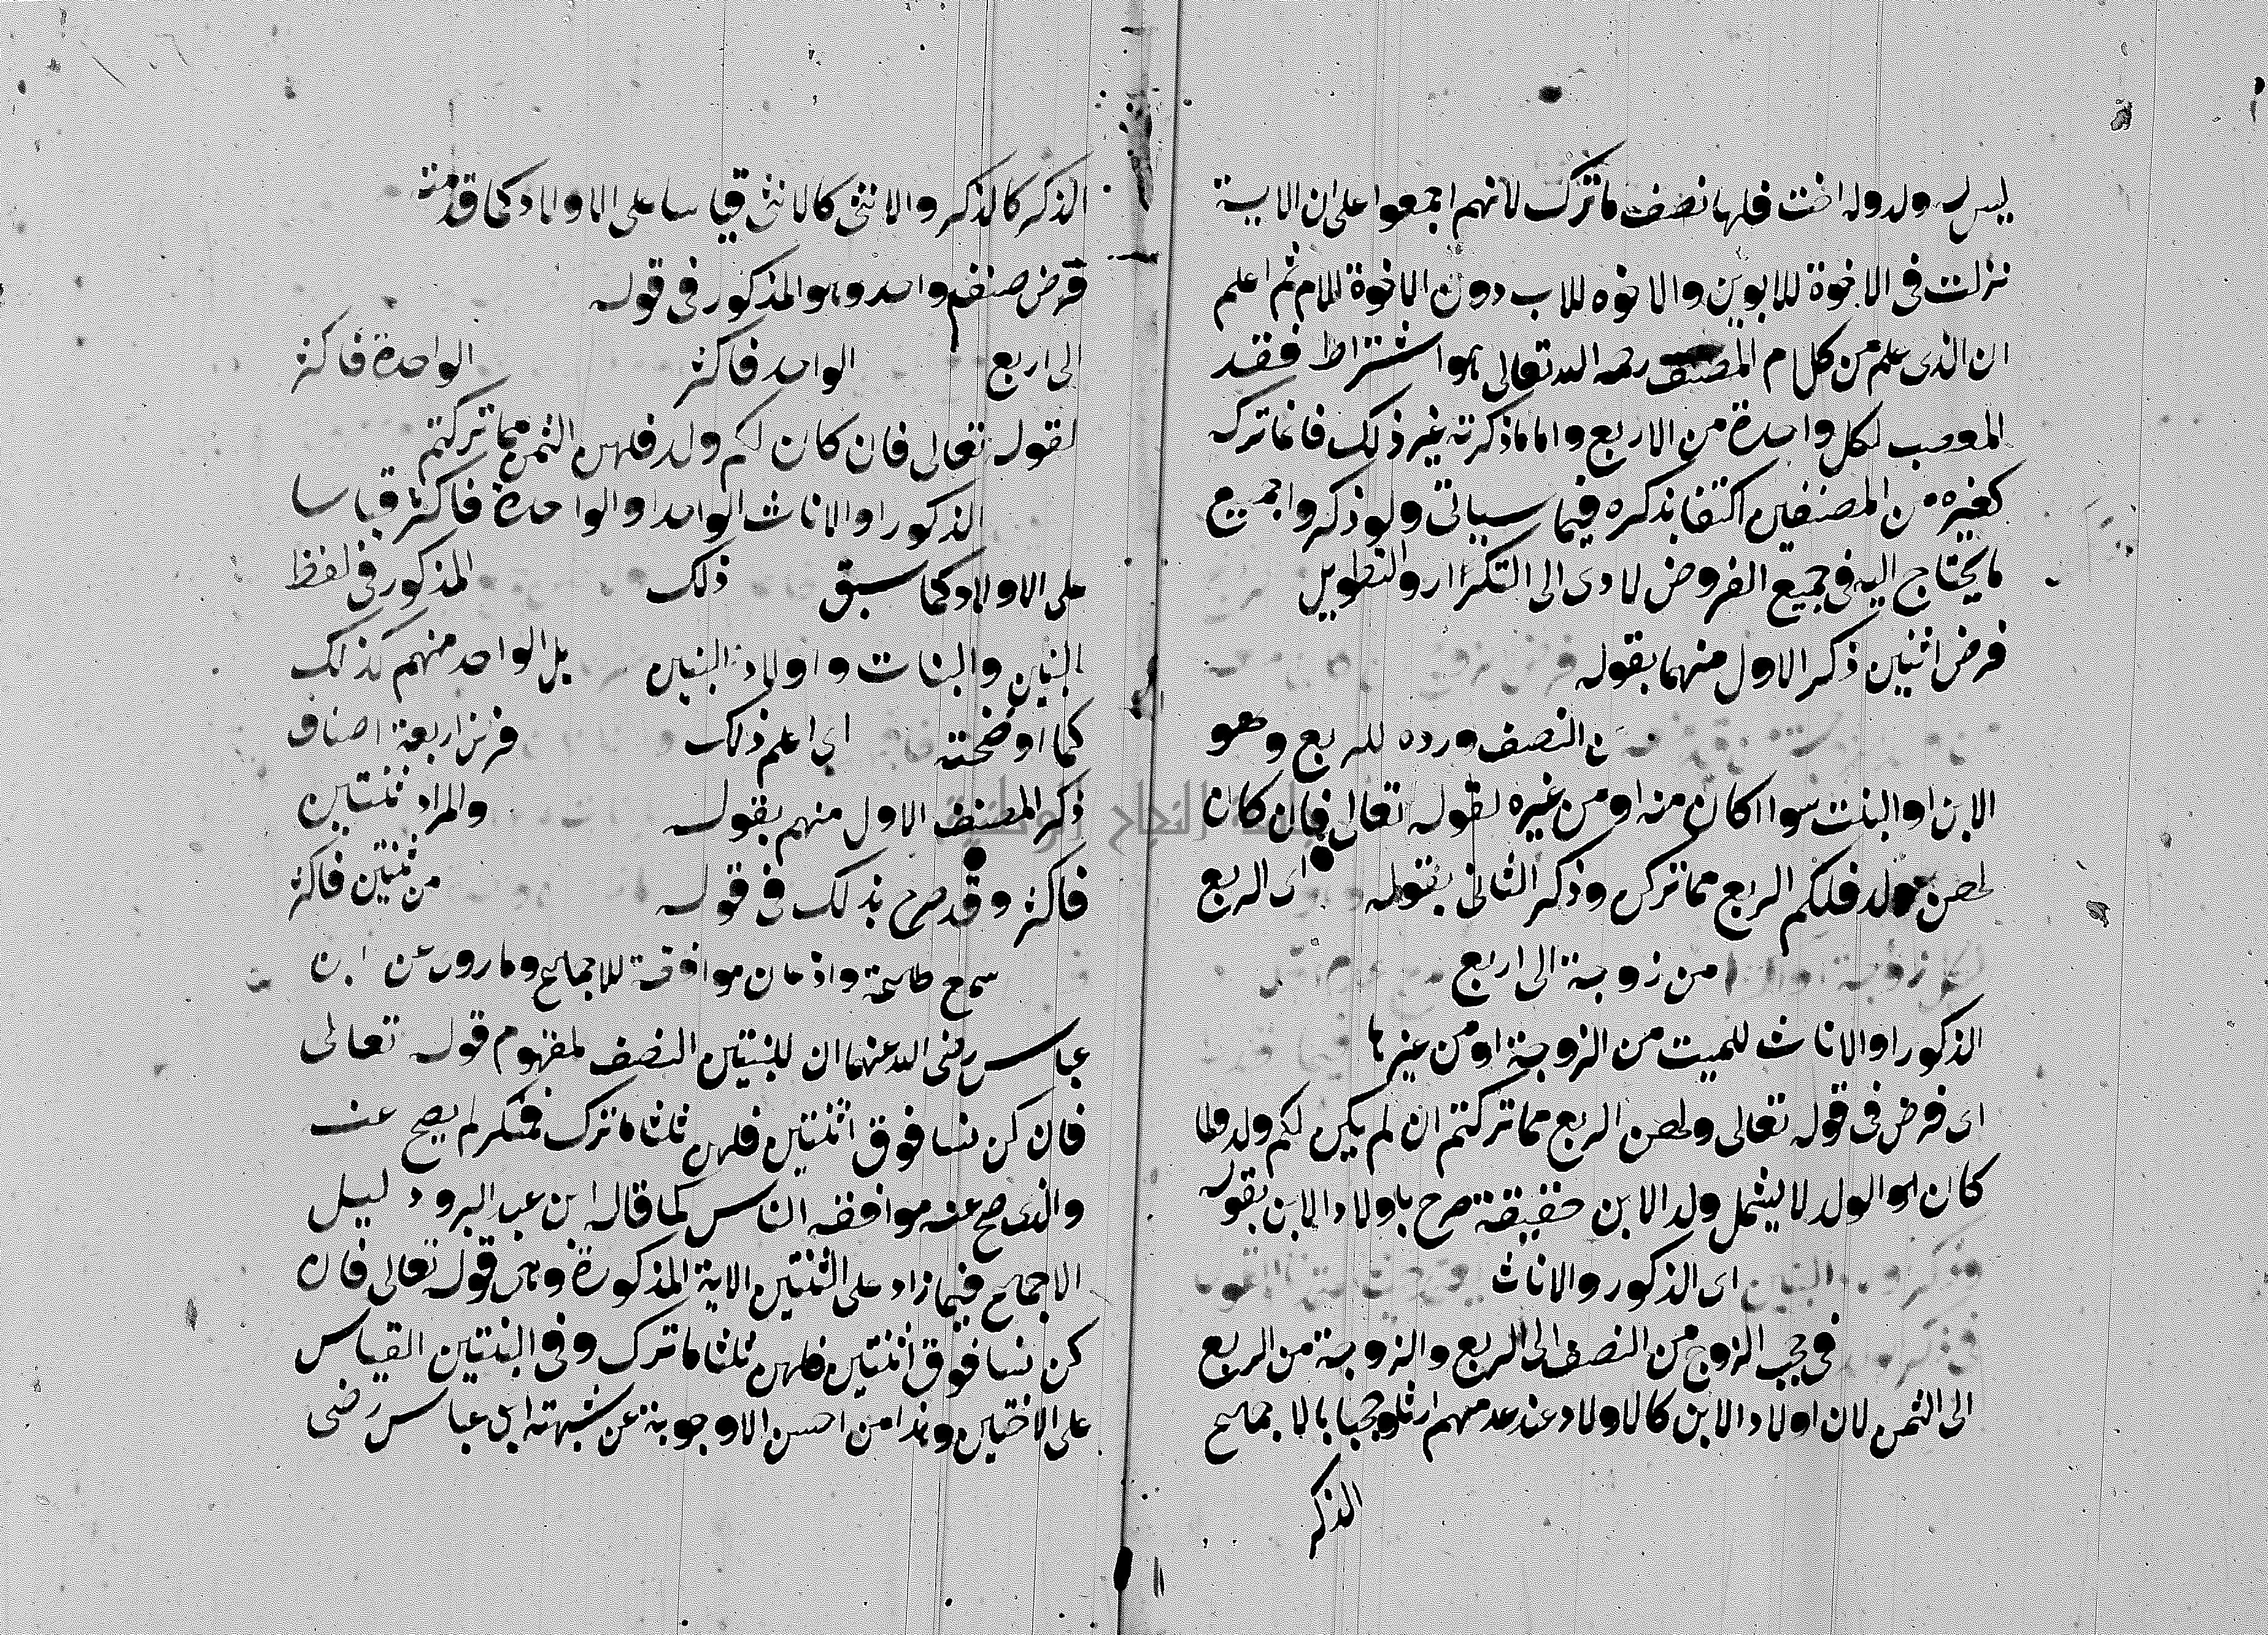 ليس له ولد وله اخت فلها نصف ما ترك لانهم اجمعوا على ان الاية
نزلت فى الاخوة للابوين والاخوه للاب دون الاخوة للام ثم اعلم
ان الذى علم من كلام المصنف رحمه الله تعالى هو اشتراط فقد
المعصب لكل واحدة من الاربع واما ما ذكرته غير ذلك فانما تركه
كغيره من المصنفين اكتفا بذكره فيما سياتى ولو ذكروا جميع
ما يحتاج اليه فى جميع الفروض لادى الى التكرار والتطويل
فرض اثنين ذكر الاول منهما بقوله
ن النصف ورده للربع وهو
الابن او البنت سوا اكان منه او من غيره لقوله تعالى فان كان
لهن ولد فلكم الربع مما تركن وذكر الثانى بقوله اى الربع
من زوجة الى اربع
الذكور او الاناث للميت من الزوجة او من غيرها
اى فرض فى قوله تعالى ولهن الربع مما تركتم ان لم يكن لكم ولد ولما
كان الولد لا يشمل ولد الابن حقيقة صرح باولاد الابن بقوله
البنين اى الذكور والاناث
فى حجب الزوج من النصف الى الربع والزوجة من الربع
الى الثمن لان اولاد الابن كالاولاد عند عدمهم ارثا وحجبا بالاجماع
الذكر
الذكر كالذكر والانثى كالانثى قياسا على الاولاد كما قدمته
فرض صنف واحد وهو المذكور فى قوله
الى اربع الواحد فاكثر الواحدة فاكثر
لقوله تعالى فان كان لكم ولد فلهن الثمن مما تركتم
الذكور او الاناث الواحد او الواحدة فاكثر قياسا
على الاولاد كما سبق ذلك المذكور فى لفظ
البنين والبنات واولاد البنين بل الواحد منهم كذلك
كما اوضحته اى اعلم ذلك فرض اربعة اصناف
ذكر المصنف الاول منهم بقوله والمراد ثنتين
فاكثر وقد صرح بذلك فى قوله من ثنتين فاكثر
سمع واذعان موافقة للاجماع وما روى عن ابن
عباس رضى الله عنهما ان للبنتين النصف لمفهوم قوله تعالى
فان كن نسا فوق اثنتين فلهن ثلثا ما ترك فمنكر لم يصح عنه
والذى صح عنه موافقه الناس كما قاله ابن عبد البر ودليل
الاجماع فيما زاد على الثنتين الاية المذكورة وهى قوله تعالى فان
كن نسا فوق اثنتين فلهن ثلثا ما ترك وفى البنتين القياس
على الاختين وهذا من احسن الاوجوبة عن شبهته ابن عباس رضى